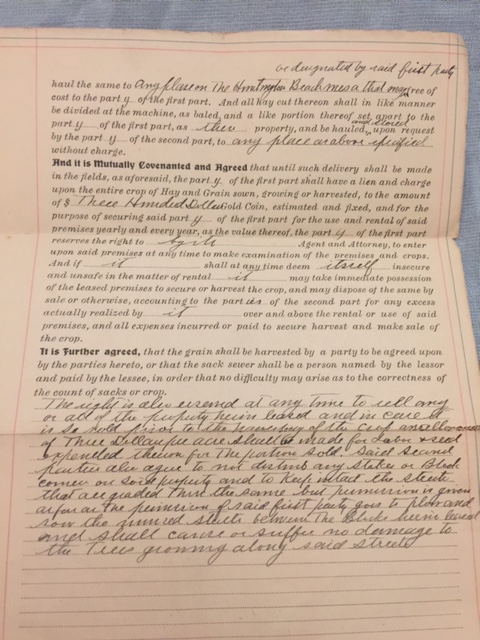 or designated by said first party
haul the same to Any place on The Huntington Beach mesa that may be free of
cost to the party of the first part. And all hay cut thereon shall in like manner
be divided at the machine, as baled, and a like portion thereof set apart to the
part y of the first part, as their property, and be hauled and stored upon request
by the part y of the second part, to any place as above specified
without charge.
And it is Mutually Covenanted and Agreed that until such delivery shall be made
in the fields, as aforesaid, the part y of the first part shall have a lien and charge
upon the entire crop of Hay and Grain sown, growing or harvested, to the amount
of $ Three Hundred Dollars Gold Coin, estimated and fixed, and for the
purpose of securing said part y of the first part for the use and rental of said
premises yearly and every year, as the value thereof, the part y of the first part
reserves the right to by its Agent and Attorney, to enter
upon said premises at any time to make examination of the premises and crops.
And if it shall at any time deem itself insecure
and unsafe in the matter of rental it may take immediate possession
of the leased premises to secure or harvest the crop, and may dispose of the same by
sale or otherwise, accounting to the part ies of the second part for any excess
actually realized by it over and above the rental or use of said
premises, and all expenses incurred or paid to secure harvest and make sale of
the crop.
It is Further agreed, that the grain shall be harvested by a party to be agreed upon
by the parties hereto, or that the sack sewer shall be a person named by the lessor
and paid by the lessee, in order that no difficulty may arise as to the correctness of
the count of sacks or crop.
The right is also reserved at any time to sell any
or all of the property herein leased and in case it
is so sold prior to the harvesting of the crop an allowance
of Three Dollars per acre shall be made for Labor & seed
expended thereon for the portion sold. Said second
parties also agree to not disturb any stakes or Block
corners on said property and to keep intact the streets
that are graded thru the same but permission is given
as far as the permission of said first party goes to plow and
sow the unused streets between the Blocks herein leased
and shall cause or suffer no damage to
the Trees growing along said streets